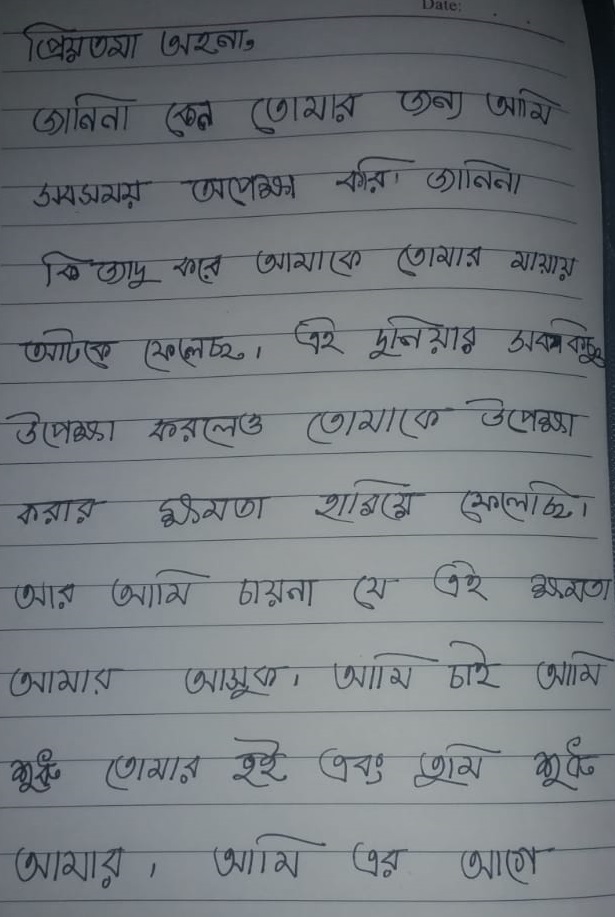 Date:
প্রিয়তমা অহনা,
জানিনা কেন তোমার জন্য আমি
সবসময় অপেক্ষা করি। জানিনা
কি জাদু করে আমাকে তোমার মায়ায়
আটকে ফেলেছ। এই দুনিয়ার সবকিছু
উপেক্ষা করলেও তোমাকে উপেক্ষা
করার ক্ষমতা হারিয়ে ফেলেছি।
আর আমি চায়না যে এই ক্ষমতা
আমার আসুক। আমি চাই আমি
শুধু তোমার হই এবং তুমি শুধু
আমার। আমি এর আগে